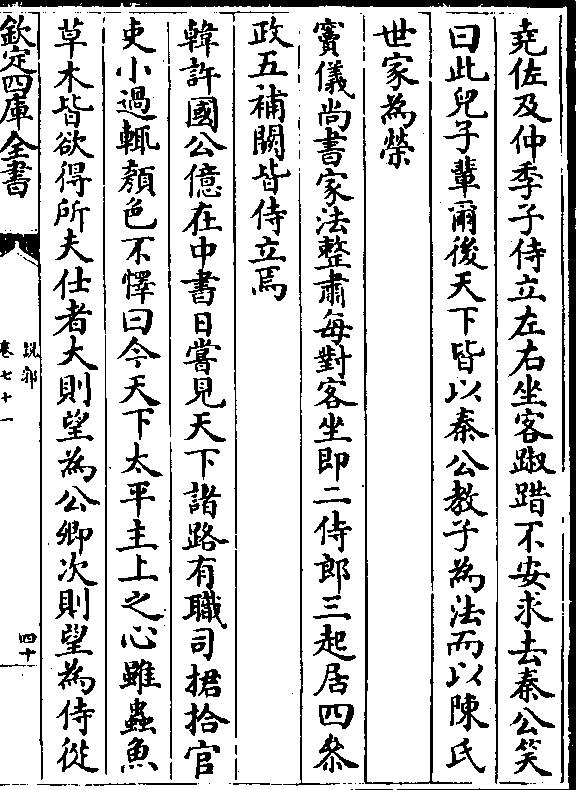 堯佐及仲季子侍立左右坐客踧踖不安求去秦公笑
曰此兒子輩爾後天下皆以秦公教子為法而以陳氏
世家為榮
竇儀尚書家法整肅每對客坐即二侍郎三起居四叅
政五補闕皆侍立焉
韓許國公億在中書日嘗見天下諸路有職司捃拾官
吏小過輒頳色不懌曰今天下太平主上之心雖蟲魚
草木皆欲得所夫仕者大則望為公卿次則望為侍從
欽定四庫全書
說郛
卷七十一
四十